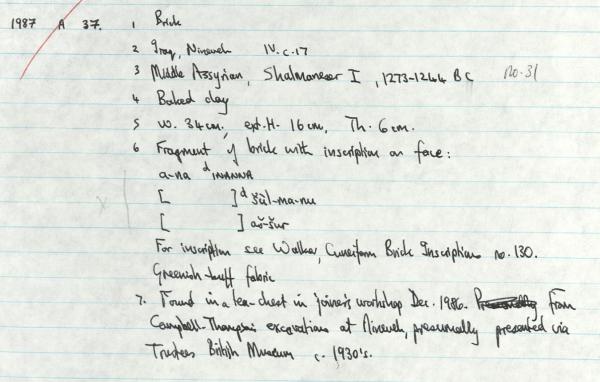 1987 A 37. 1 Brick
2 Iraq, Nineveh IV.c.17
3 Middle Assyrian, Shalmaneser I, 1273-1244 BC no. 31
4 Baked clay
5 W. 34cm, ext. H. 16cm, Th. 6cm.
6 Fragment of brick with inscription on face:
a-na ᵈINANNA
[ ] ᵈšùl-ma-nu
[ ] aš-šur
For inscription see Walker, Cuneiform Brick Inscriptions no. 130.
Greenish-buff fabric
7. Found in a tea-chest in joiner's workshop Dec. 1986. From
Campbell-Thompson excavations at Nineveh, presumably presented via
Trustees British Museum c. 1930's.